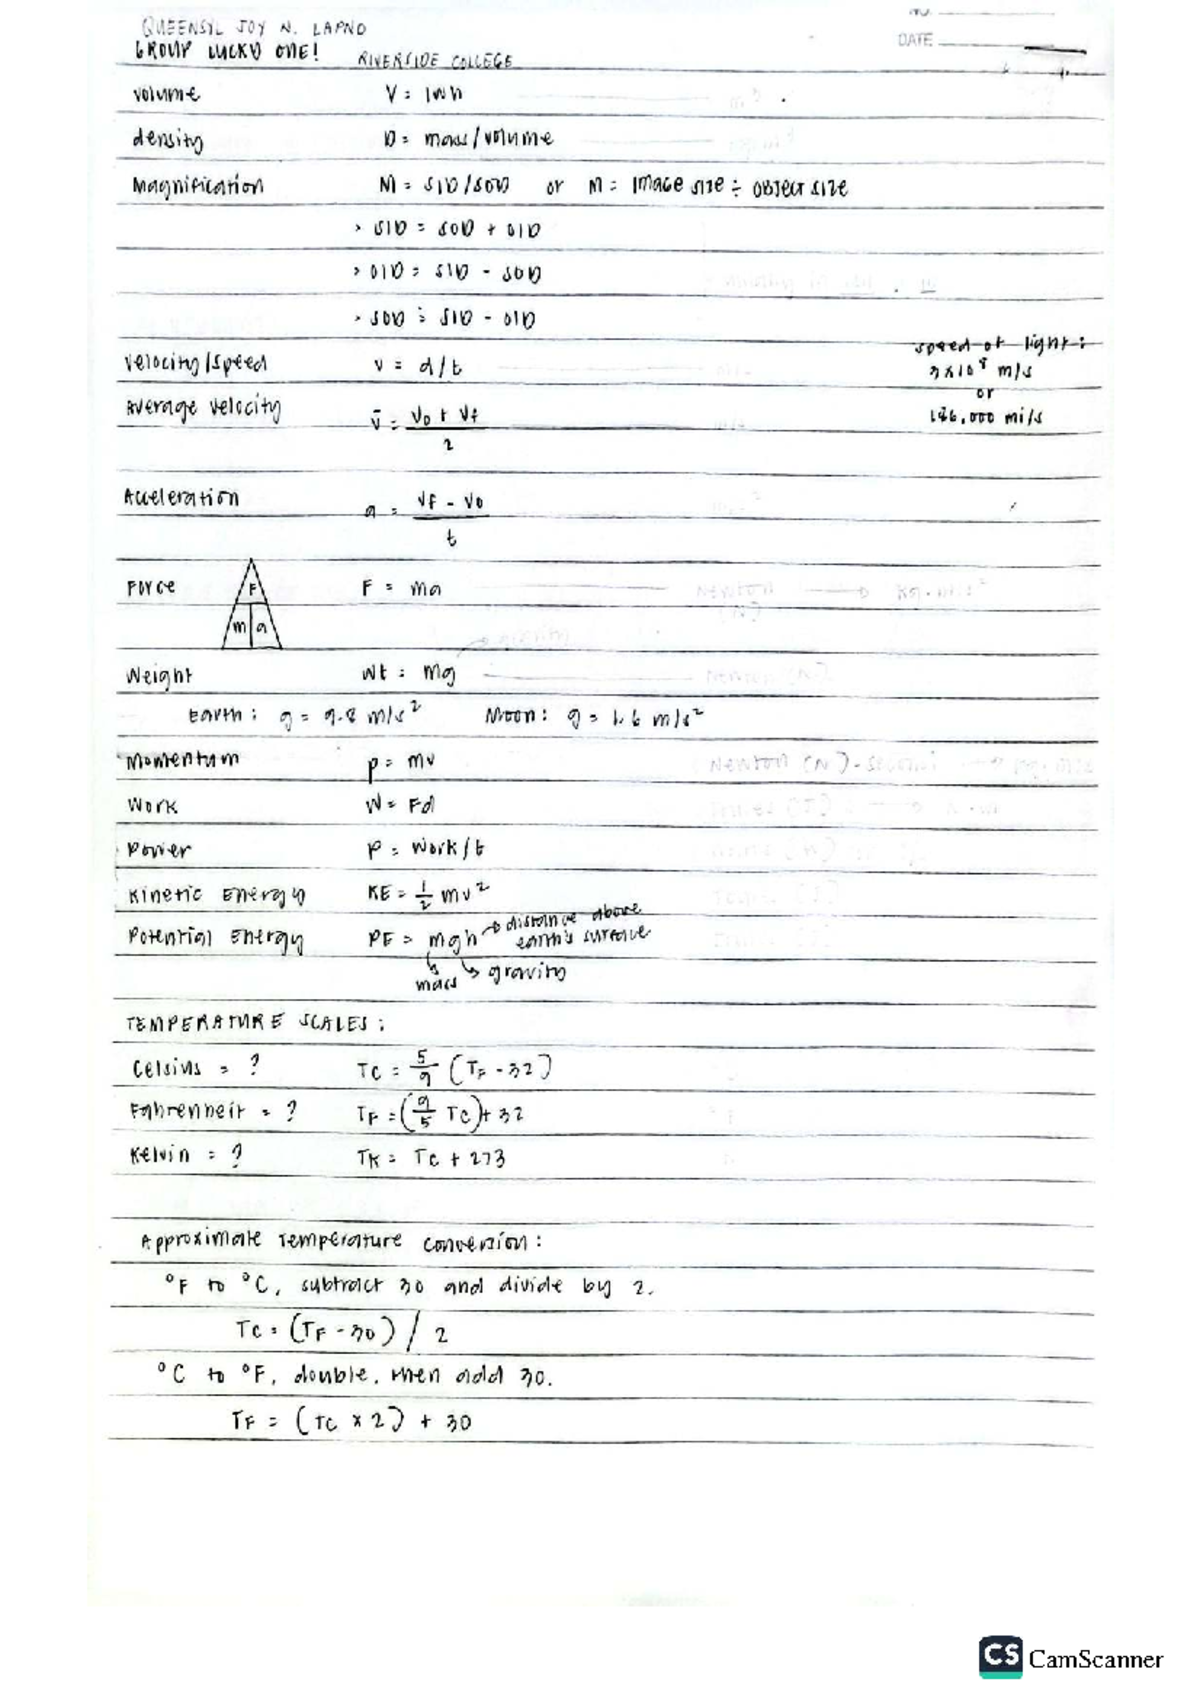 QUEENSYL JOY N. LAPNO
GROUP LUCKY ONE! RIVERSIDE COLLEGE
NO.
DATE
volume V = lwh
density D = mass/volume
Magnification M = SID/SOD or M = IMAGE SIZE ÷ OBJECT SIZE
> SID = SOD + OID
> OID = SID - SOD
> SOD = SID - OID
speed of light:
3x10⁸ m/s
or
186,000 mi/s
Velocity/speed v = d/t
Average velocity v̄ = V₀ + Vf / 2
Acceleration a = Vf - V₀ / t
Force F = ma
F
m a
Weight Wt = mg
Earth: g = 9.8 m/s² Moon: g = 1.6 m/s²
Momentum p = mv
Work W = Fd
Power P = Work/t
Kinetic Energy KE = 1/2 mv²
Potential Energy PE = mgh → distance above earth's surface
mass gravity
TEMPERATURE SCALES:
Celsius = ? TC = 5/9 (TF - 32)
Fahrenheit = ? TF = (9/5 TC) + 32
Kelvin = ? TK = TC + 273
Approximate Temperature conversion:
°F to °C, subtract 30 and divide by 2.
TC = (TF - 30) / 2
°C to °F, double, then add 30.
TF = (TC x 2) + 30
CS CamScanner